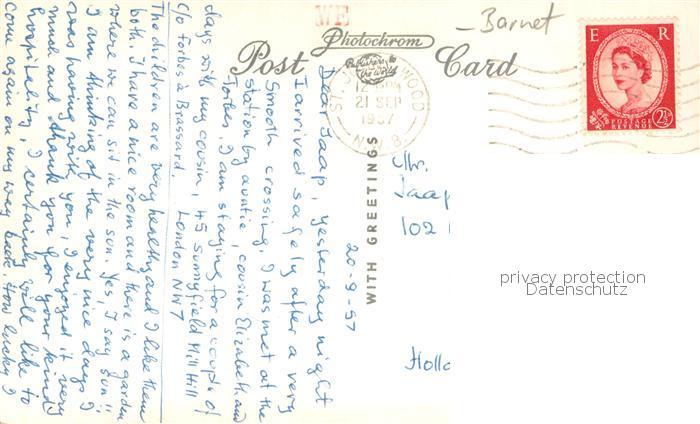 WE
- Barnet
Photochrom
Publishers to
the World
Post Card
E R
POSTAGE
REVENUE
2½
WOOD
21 SEP
1957
N.W.8.
WITH GREETINGS
20-9-57
Dear Jaap, yesterday night
I arrived safely after a very
smooth crossing. I was met at the
station by auntie, cousin Elizabeth and
Forbes. I am staying for a couple of
days with my cousin, 45 Sunnyfield Mill Hill
c/o Forbes à Brassard. London NW7
The children are very healthy and I like them
both. I have a nice room and there is a garden
where we can sit in the sun. Yes I say sun!!
I am thinking of the very nice days I
was having with you, I enjoyed it very
much and thank you for your kind
hospitality, I certainly will like to
come again on my way back. How lucky I
Mr.
Jaap
102
Hollo
privacy protection
Datenschutz